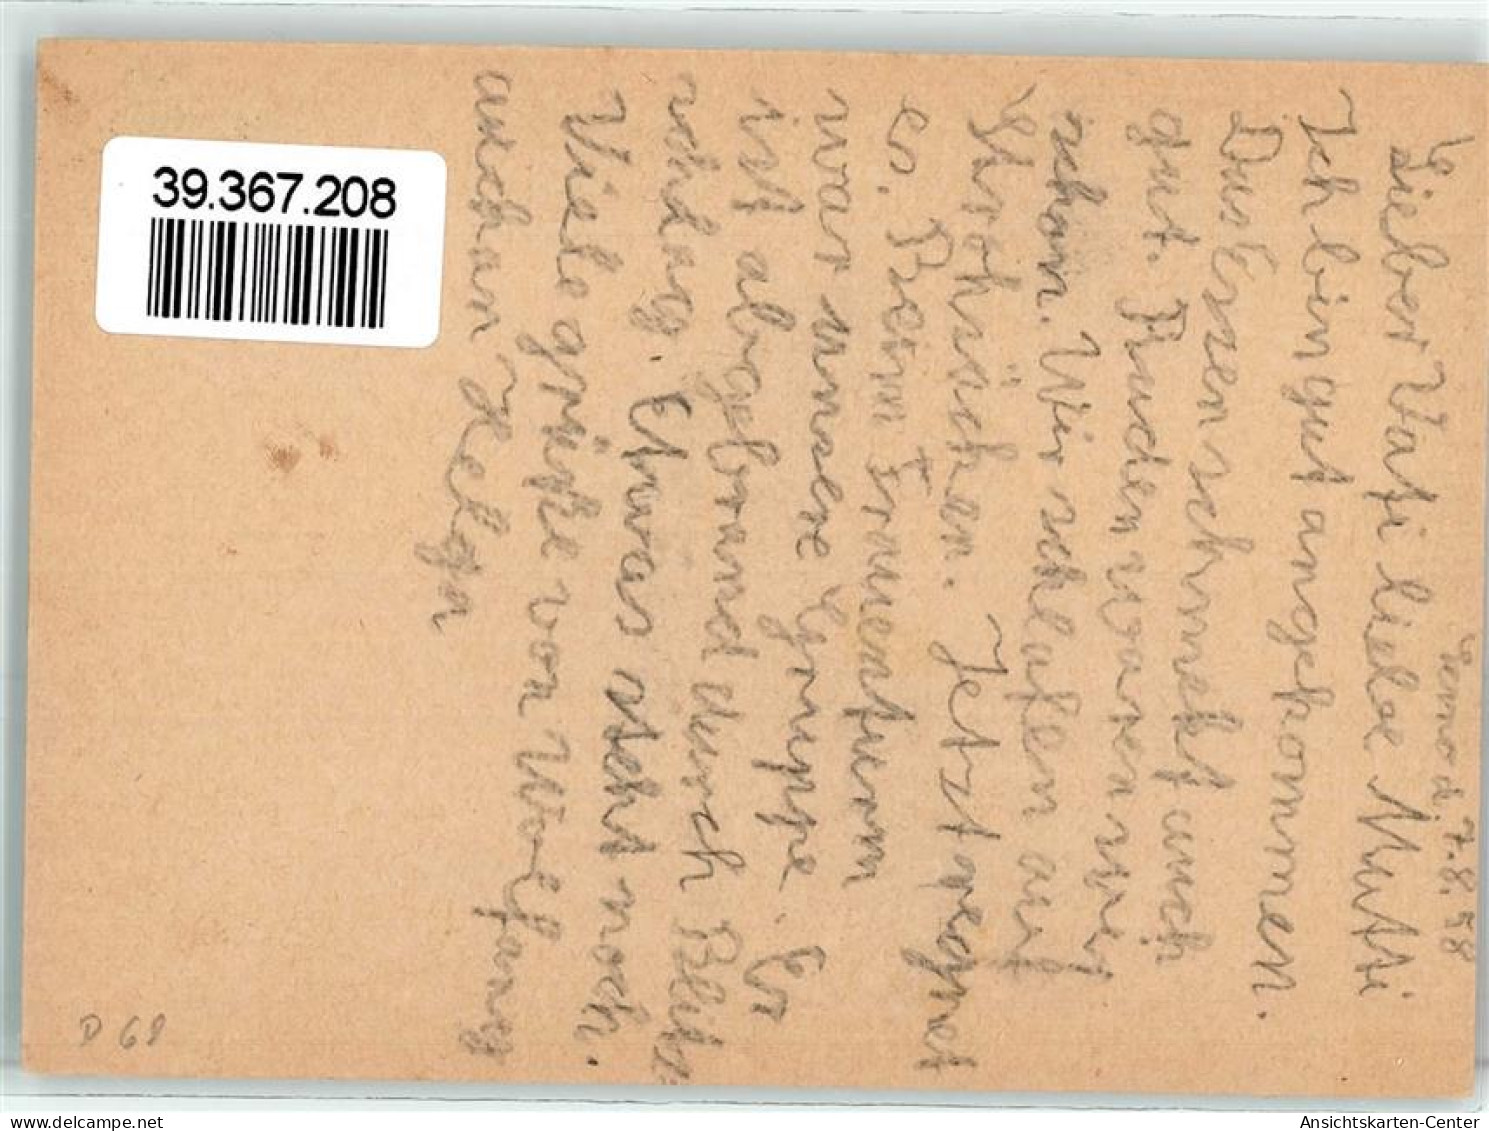 39.367.208
Gernrode 7.8.58
Lieber Vati liebe Mutti
Ich bin gut angekommen.
Das Essen schmekt auch
gut. Ruden waren wir
schon. Wir schlafen auf
Strohsäcken. Jetzt regnet
es. Beim Frauenturm
war unsere Gruppe. Er
ist abgebrand durch Blitz-
schlag. Etwas steht noch.
Viele grüße von Wolfgang
auch an Helga
D 69
Ansichtskarten-Center